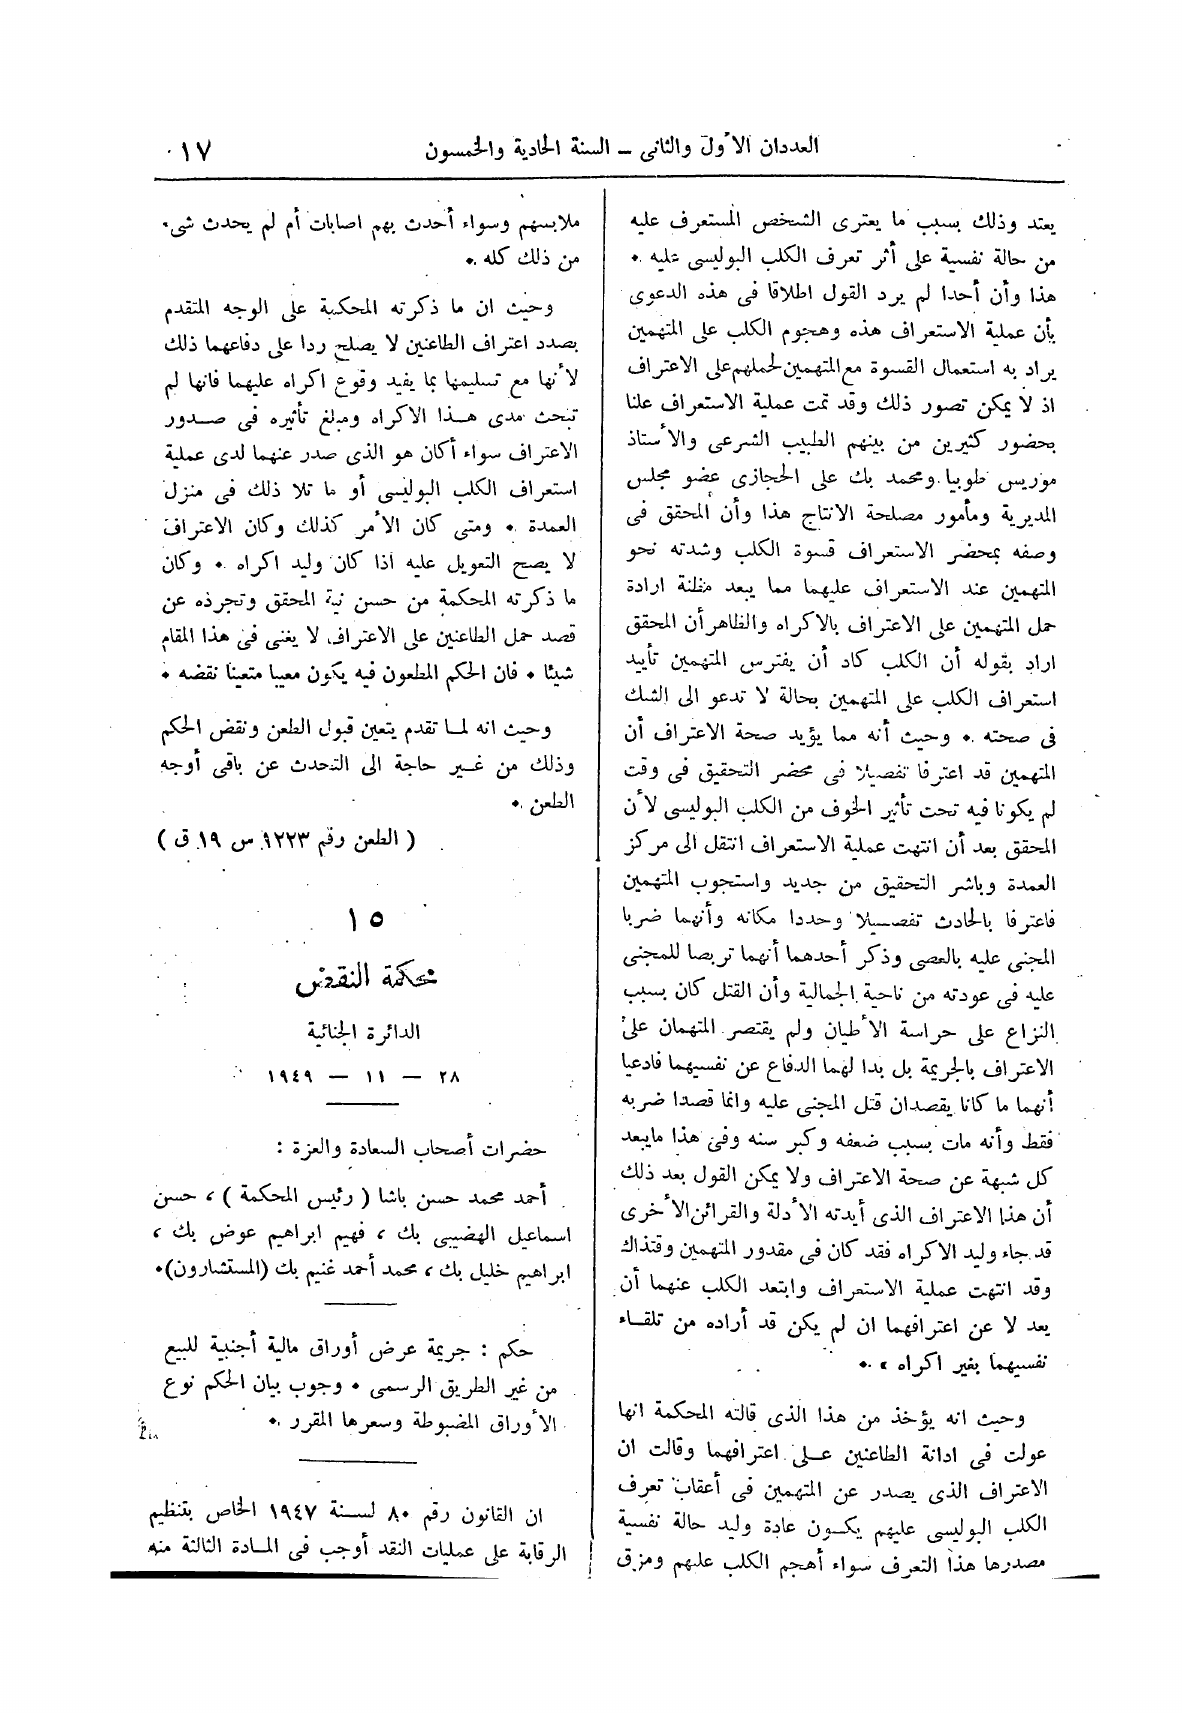 العددان الأول والثانى ــ السنة الحادية والخمسون
١٧
يعتد وذلك بسبب ما يعترى الشخص المستعرف عليه
من حالة نفسية على أثر تعرف الكلب البوليسى عليه .
هذا وأن أحدا لم يرد القول اطلاقا فى هذه الدعوى
بأن عملية الاستعراف هذه وهجوم الكلب على المتهمين
يراد به استعمال القسوة مع المتهمين لحملهم على الاعتراف
اذ لا يمكن تصور ذلك وقد تمت عملية الاستعراف علنا
بحضور كثيرين من بينهم الطبيب الشرعى والأستاذ
موريس طوبيا ومحمد بك على الحجازى عضو مجلس
المديرية ومأمور مصلحة الانتاج هذا وأن المحقق فى
وصفه بمحضر الاستعراف قسوة الكلب وشدته نحو
المتهمين عند الاستعراف عليهما مما يبعد مظنة ارادة
حمل المتهمين على الاعتراف بالاكراه والظاهر أن المحقق
اراد بقوله أن الكلب كاد أن يفترس المتهمين تأييد
استعراف الكلب على المتهمين بحالة لا تدعو الى الشك
فى صحته . وحيث أنه مما يؤيد صحة الاعتراف أن
المتهمين قد اعترفا تفصيلا فى محضر التحقيق فى وقت
لم يكونا فيه تحت تأثير الخوف من الكلب البوليسى لأن
المحقق بعد أن انتهت عملية الاستعراف انتقل الى مركز
العمدة وباشر التحقيق من جديد واستجوب المتهمين
فاعترفا بالحادث تفصيلا وحددا مكانه وأنهما ضربا
المجنى عليه بالعصى وذكر أحدهما أنهما تربصا للمجنى
عليه فى عودته من ناحية الجمالية وأن القتل كان بسبب
النزاع على حراسة الأطيان ولم يقتصر المتهمان على
الاعتراف بالجريمة بل بدا لهما الدفاع عن نفسيهما فادعيا
أنهما ما كانا يقصدان قتل المجنى عليه وانما قصدا ضربه
فقط وأنه مات بسبب ضعفه وكبر سنه وفى هذا مايبعد
كل شبهة عن صحة الاعتراف ولا يمكن القول بعد ذلك
أن هذا الاعتراف الذى أيدته الأدلة والقرائن الأخرى
قد جاء وليد الاكراه فقد كان فى مقدور المتهمين وقتذاك
وقد انتهت عملية الاستعراف وابتعد الكلب عنهما أن
يعد لا عن اعترافهما ان لم يكن قد أراده من تلقاء
نفسيهما بغير اكراه » .
وحيث انه يؤخذ من هذا الذى قالته المحكمة انها
عولت فى ادانة الطاعنين على اعترافهما وقالت ان
الاعتراف الذى يصدر عن المتهمين فى أعقاب تعرف
الكلب البوليسى عليهم يكون عادة وليد حالة نفسية
مصدرها هذا التعرف سواء أهجم الكلب عليهم ومزق
ملابسهم وسواء أحدث بهم اصابات أم لم يحدث شىء
من ذلك كله .
وحيث ان ما ذكرته المحكمة على الوجه المتقدم
بصدد اعتراف الطاعنين لا يصلح ردا على دفاعهما ذلك
لأنها مع تسليمها بما يفيد وقوع اكراه عليهما فانها لم
تبحث مدى هذا الاكراه ومبلغ تأثيره فى صدور
الاعتراف سواء أكان هو الذى صدر عنهما لدى عملية
استعراف الكلب البوليسى أو ما تلا ذلك فى منزل
العمدة . ومتى كان الأمر كذلك وكان الاعتراف
لا يصح التعويل عليه اذا كان وليد اكراه . وكان
ما ذكرته المحكمة من حسن نية المحقق وتجرذه عن
قصد حمل الطاعنين على الاعتراف لا يغنى فى هذا المقام
شيئا . فان الحكم المطعون فيه يكون معيبا متعينا نقضه .
وحيث انه لما تقدم يتعين قبول الطعن ونقض الحكم
وذلك من غير حاجة الى التحدث عن باقى أوجه
الطعن .
( الطعن رقم ١٢٢٣ س ١٩ ق )
١٥
محكمة النقض
الدائرة الجنائية
٢٨ – ١١ – ١٩٤٩
حضرات أصحاب السعادة والعزة :
أحمد محمد حسن باشا ( رئيس المحكمة ) ، حسن
اسماعيل الهضيبى بك ، فهيم ابراهيم عوض بك ،
ابراهيم خليل بك ، محمد أحمد غنيم بك (المستشارون).
حكم : جريمة عرض أوراق مالية أجنبية للبيع
من غير الطريق الرسمى . وجوب بيان الحكم نوع
الأوراق المضبوطة وسعرها المقرر .
ان القانون رقم ٨٠ لسنة ١٩٤٧ الخاص بتنظيم
الرقابة على عمليات النقد أوجب فى المادة الثالثة منه